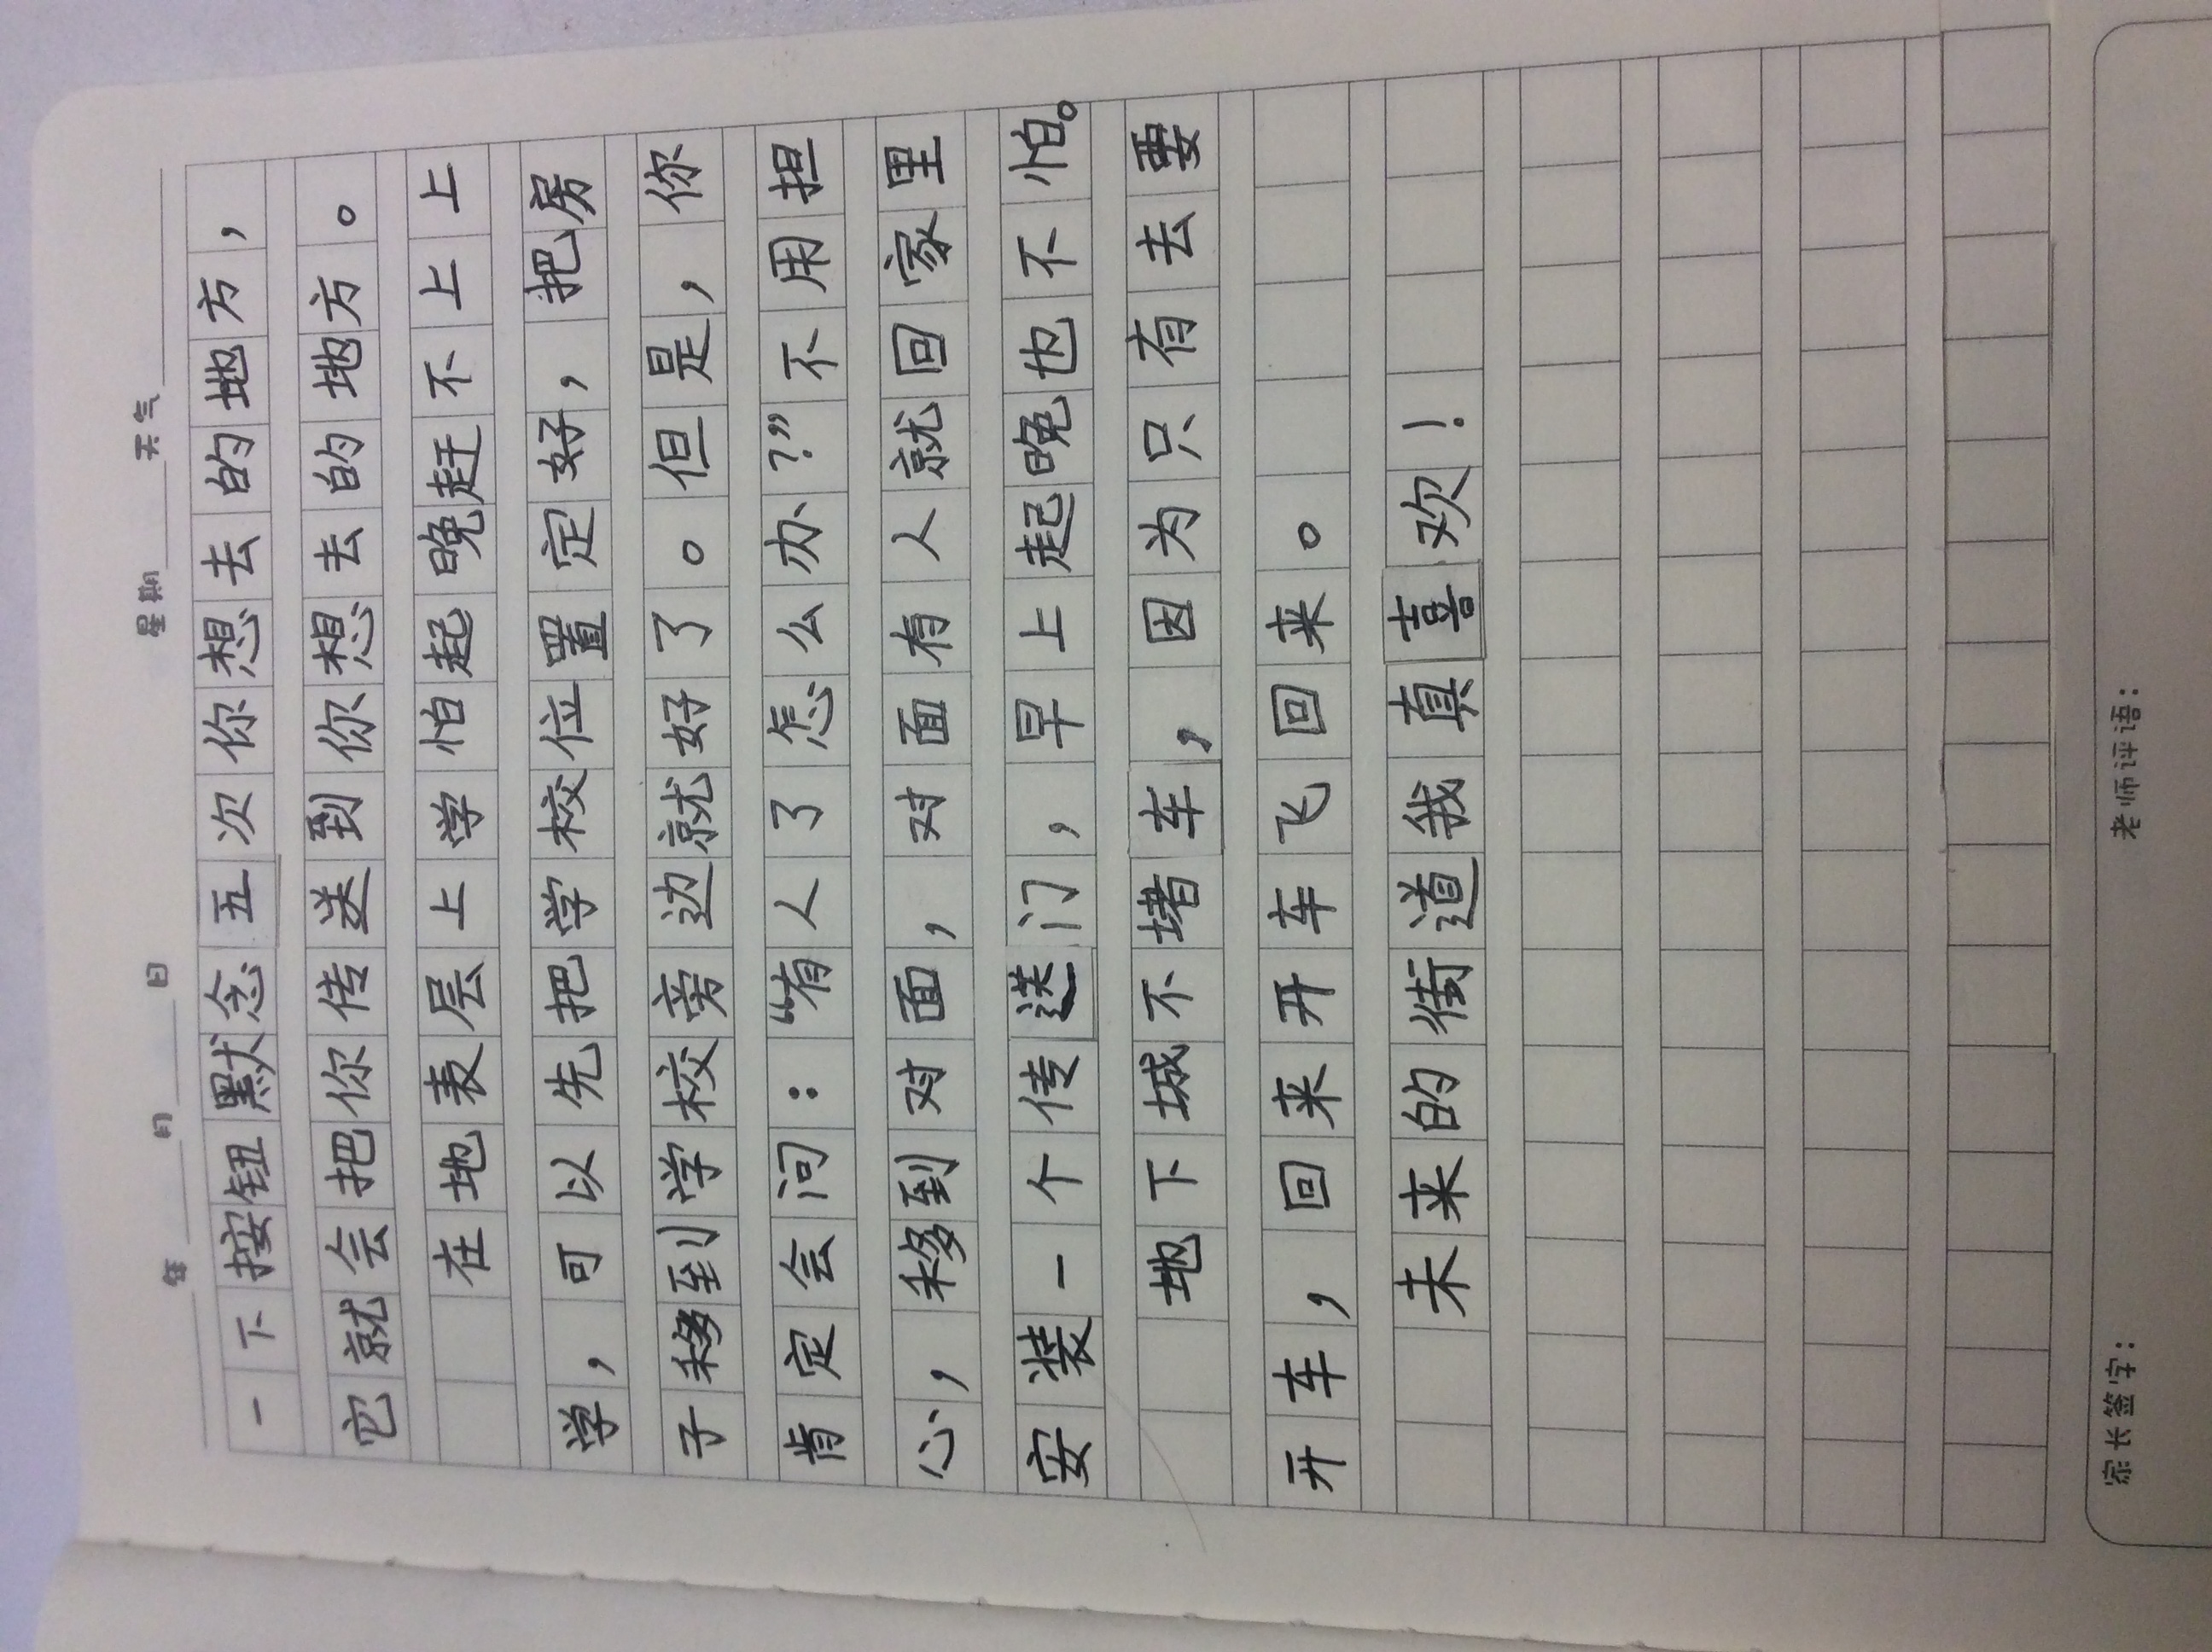 年 月 日 星期 天气
一下按钮默念五次你想去的地方，
它就会把你传送到你想去的地方。
在地表层上学怕起晚赶不上上
学，可以先把学校位置定好，把房
子移到学校旁边就好了。但是，你
肯定会问：“有人了怎么办？”不用担
心，移到对面，对面有人就回家里
安装一个传送门，早上起晚也不怕。
地下城不堵车，因为只有去要
开车，回来开车飞回来。
未来的街道我真喜欢！
家长签字： 老师评语：